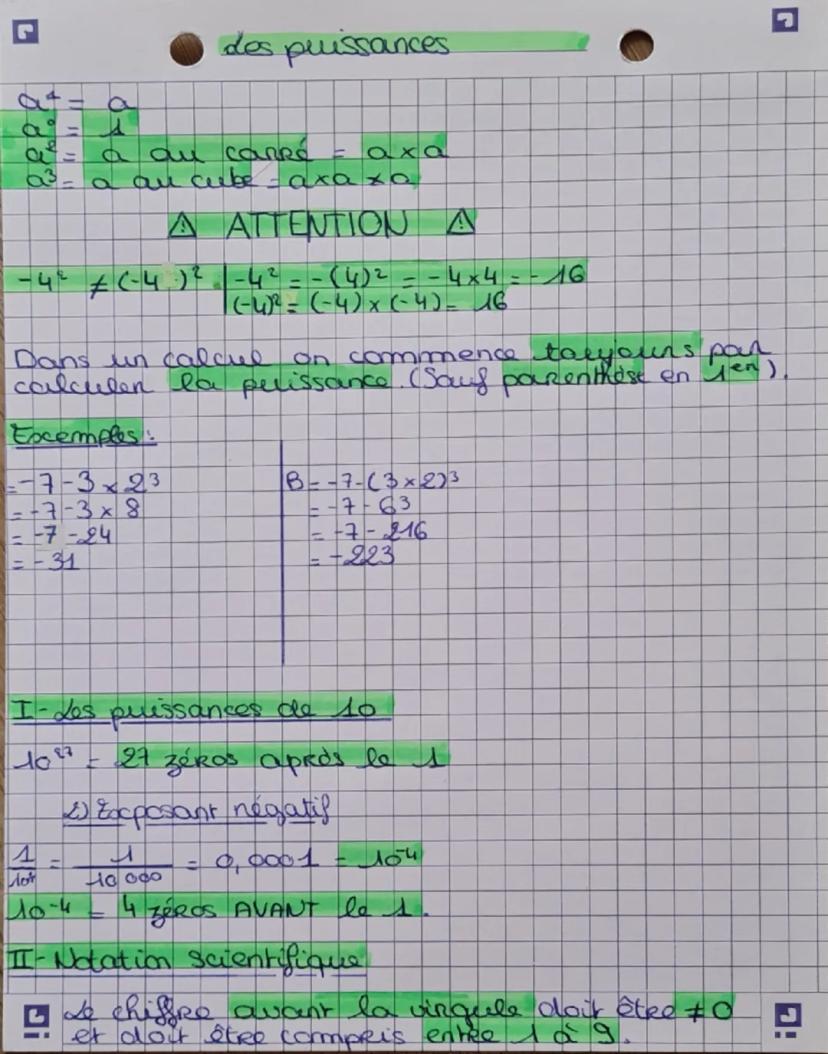 Les puissances
a¹ = a
a⁰ = 1
a² = a au carré = a×a
a³ = a au cube = a×a×a
⚠ ATTENTION ⚠
-4² ≠ (-4)² | -4² = -(4)² = -4×4 = -16
(-4)² = (-4)×(-4) = 16
Dans un calcul on commence toujours par
calculer la puissance. (Sauf parenthèse en 1er).
Exemples:
= -7-3×2³
= -7-3×8
= -7-24
= -31
B = -7-(3×2)³
= -7-6³
= -7-216
= -223
I- Les puissances de 10
10²⁷ = 27 zéros après le 1
2) Exposant négatif
1/10⁴ = 1/10 000 = 0,0001 = 10⁻⁴
10⁻⁴ = 4 zéros AVANT le 1.
II- Notation scientifique
Le chiffre avant la virgule doit être ≠ 0
et doit être compris entre 1 à 9.